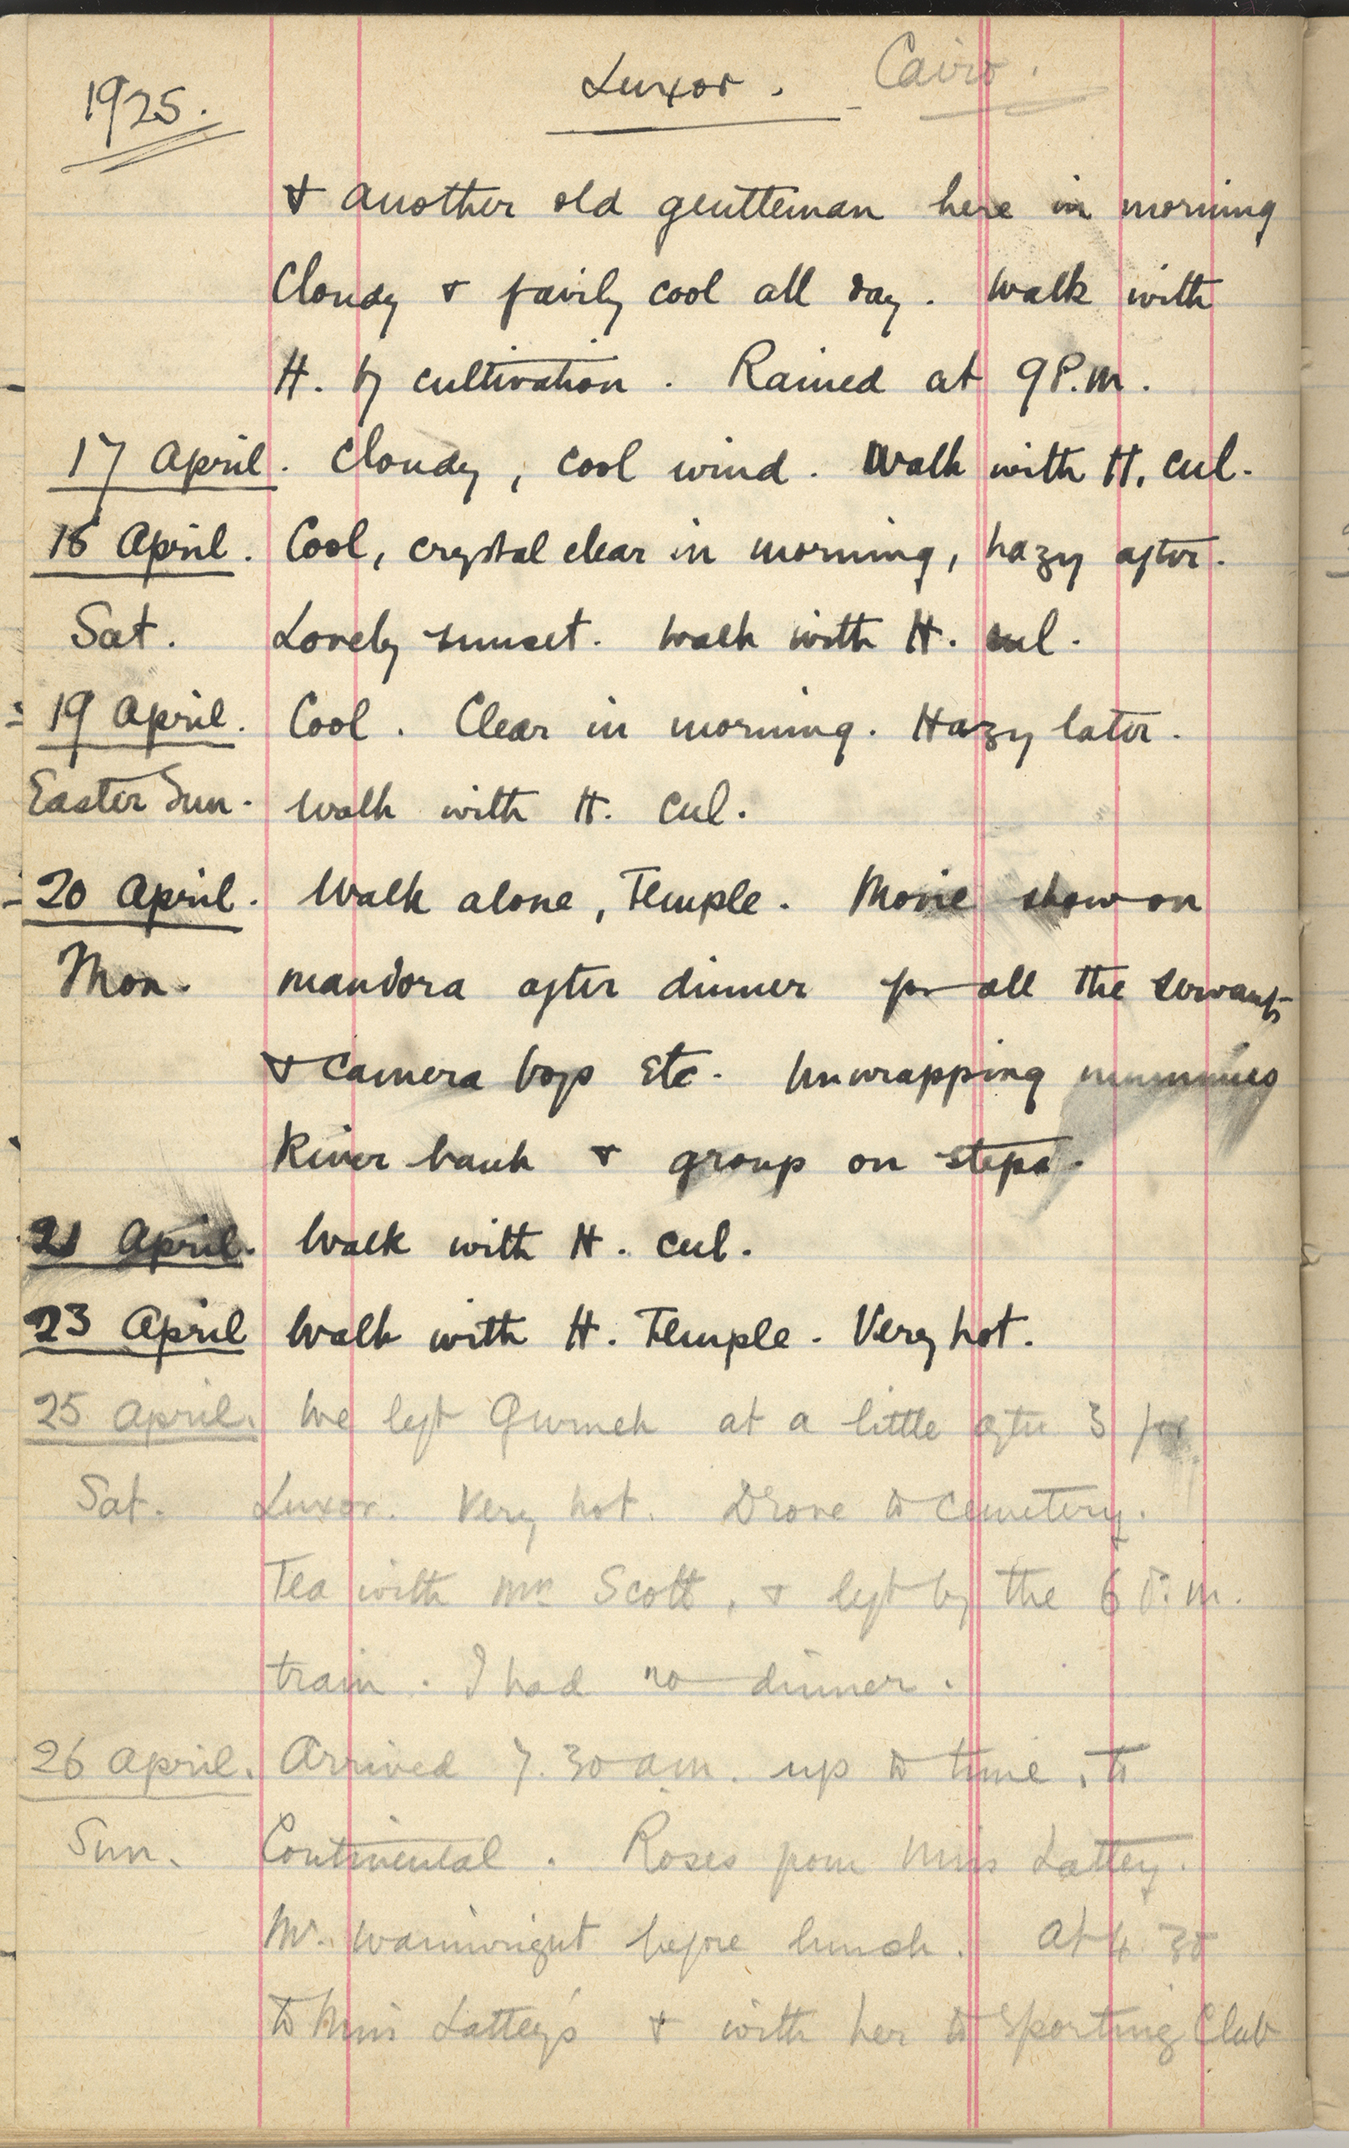 1925. Luxor. - Cairo.
& another old gentleman here in morning
Cloudy & fairly cool all day. Walk with
H. by cultivation. Rained at 9 P.M.
17 April. Cloudy, cool wind. Walk with H. cul.
18 April. Cool, crystal clear in morning, hazy after.
Sat. Lovely sunset. Walk with H. cul.
19 April. Cool. Clear in morning. Hazy later.
Easter Sun. Walk with H. cul.
20 April. Walk alone, Temple. Movie show on
Mon. mandara after dinner for all the servants
& camera boys etc. Unwrapping mummies
River bank & group on steps.
21 April. Walk with H. cul.
23 April Walk with H. Temple. Very hot.
25 April. We left Qurneh at a little after 3 for
Sat. Luxor. Very hot. Drove to cemetery.
Tea with Mrs Scott, & left by the 6 P.M.
train. I had no dinner.
26 April. Arrived 7.30 a.m. up to time, to
Sun. Continental. Roses from Miss Lattey.
Mr. Wainwright before lunch. At 4.30
to Miss Lattey's & with her to Sporting Club